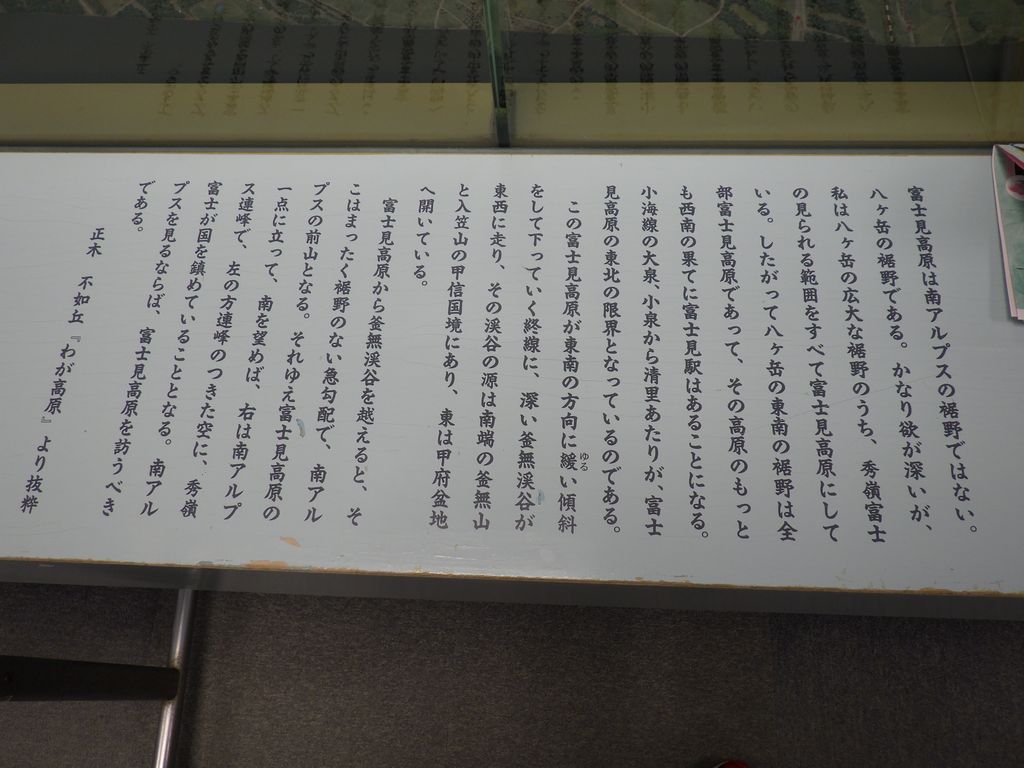 富士見高原は南アルプスの裾野ではない。
八ヶ岳の裾野である。かなり欲が深いが、
私は八ヶ岳の広大な裾野のうち、秀嶺富士
の見られる範囲をすべて富士見高原にして
いる。したがって八ヶ岳の東南の裾野は全
部富士見高原であって、その高原のもっと
も西南の果てに富士見駅はあることになる。
小海線の大泉、小泉から清里あたりが、富士
見高原の東北の限界となっているのである。
この富士見高原が東南の方向に緩い傾斜
ゆる
をして下っていく終線に、深い釜無渓谷が
東西に走り、その渓谷の源は南端の釜無山
と入笠山の甲信国境にあり、東は甲府盆地
へ開いている。
富士見高原から釜無渓谷を越えると、そ
こはまったく裾野のない急勾配で、南アル
プスの前山となる。それゆえ富士見高原の
一点に立って、南を望めば、右は南アルプ
ス連峰で、左の方連峰のつきた空に、秀嶺
富士が国を鎮めていることとなる。南アル
プスを見るならば、富士見高原を訪うべき
である。
正木 不如丘『わが高原』より抜粋